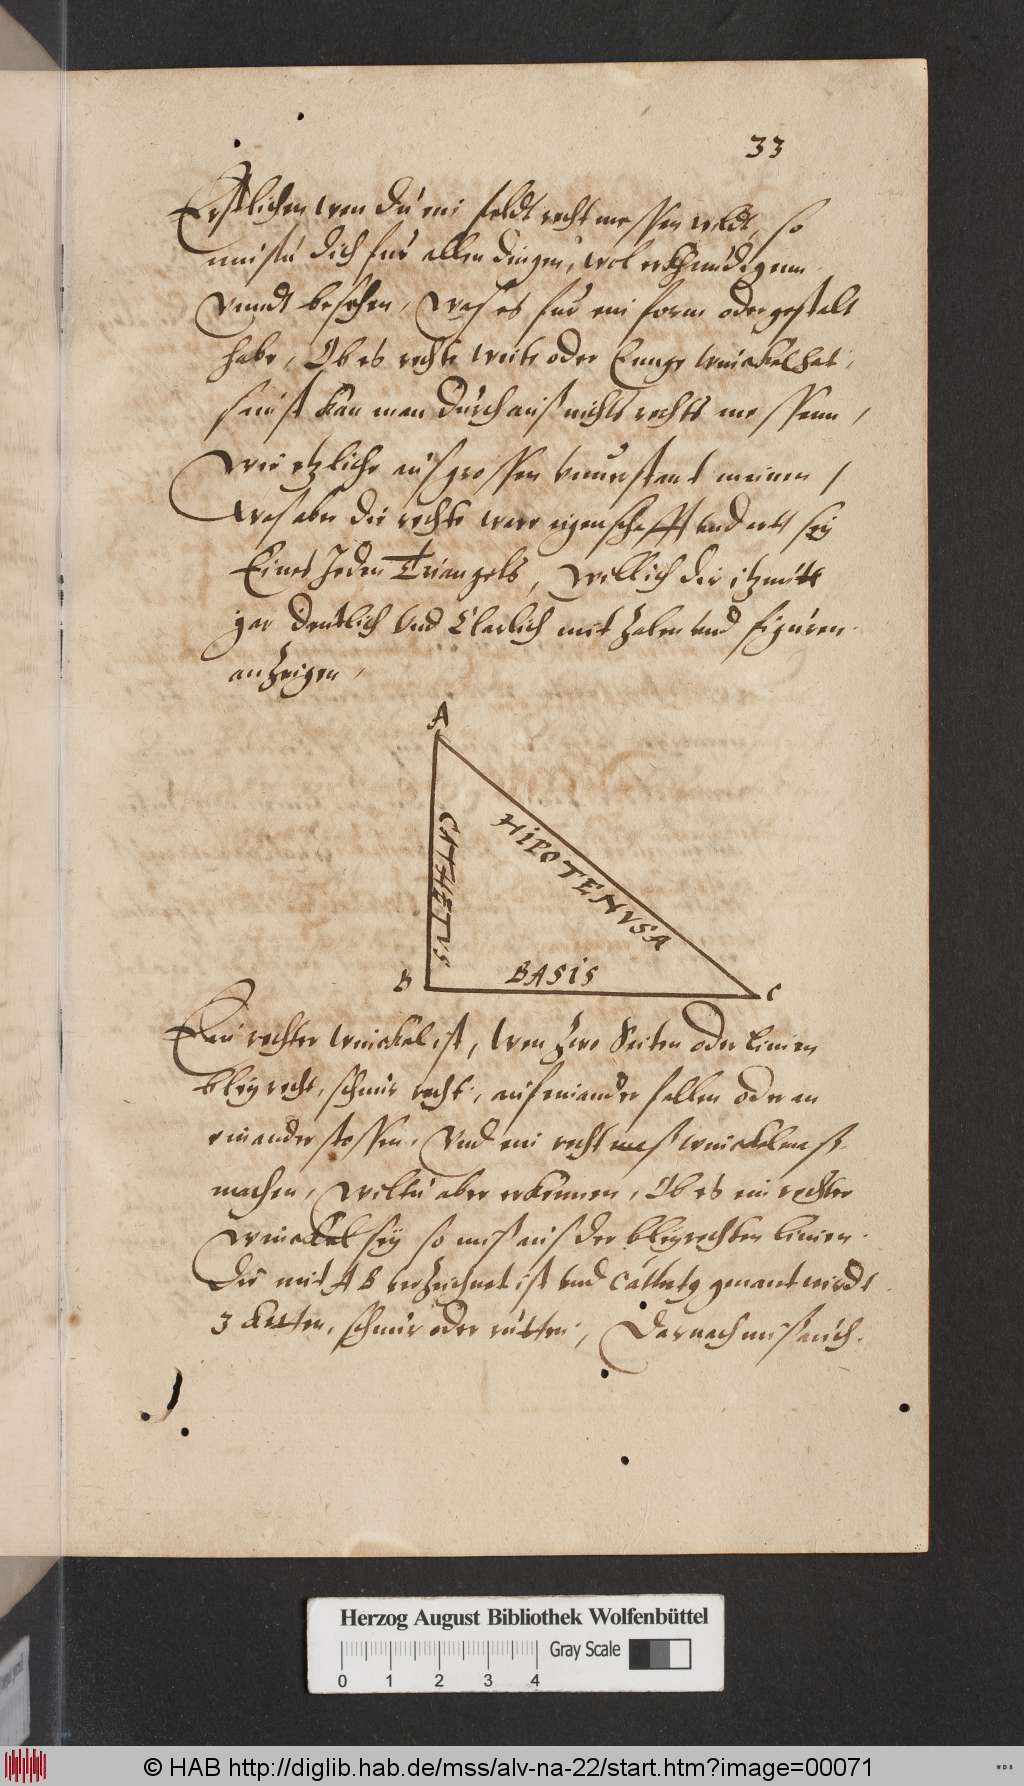 33
Erstlichen wen du ein feldt recht messen wildt, so
mustu dich fur allen dingen, wol erkhundigenn
vnndt besehen, was es fur ein form oder gestalt
habe, Ob es rechte weite oder Ennge winckel hat,
sunst kan man durchauß nichts rechts messenn,
wie etzliche aus grossen vnuerstant meinen,
Was aber die rechte ware eigenschafft vnd art sey
Eines Jeden Triangels, will ich dir itzunt
gar deutlich Vnd Clerlich mit Zalen vnd figuren
anzeigen,
A
CATHETVS
HIPOTENVSA
BASIS
B
C
Ein rechter winckel ist, wen zwo Seiten oder linien
bleyrecht, schnur recht, auf einander fallen oder an
einander stossen, Vnd ein recht winckelmaß
machen, wiltu aber erkennen, Ob es ein rechter
winckel sey so miß auß der bleyrechten linien
Die mit A B verzeichnet ist vnd Cathetus genant wirdt
3 Ketten, schnur oder rutten, Darnach miß auch
Herzog August Bibliothek Wolfenbüttel
Gray Scale
0 1 2 3 4
© HAB http://diglib.hab.de/mss/alv-na-22/start.htm?image=00071